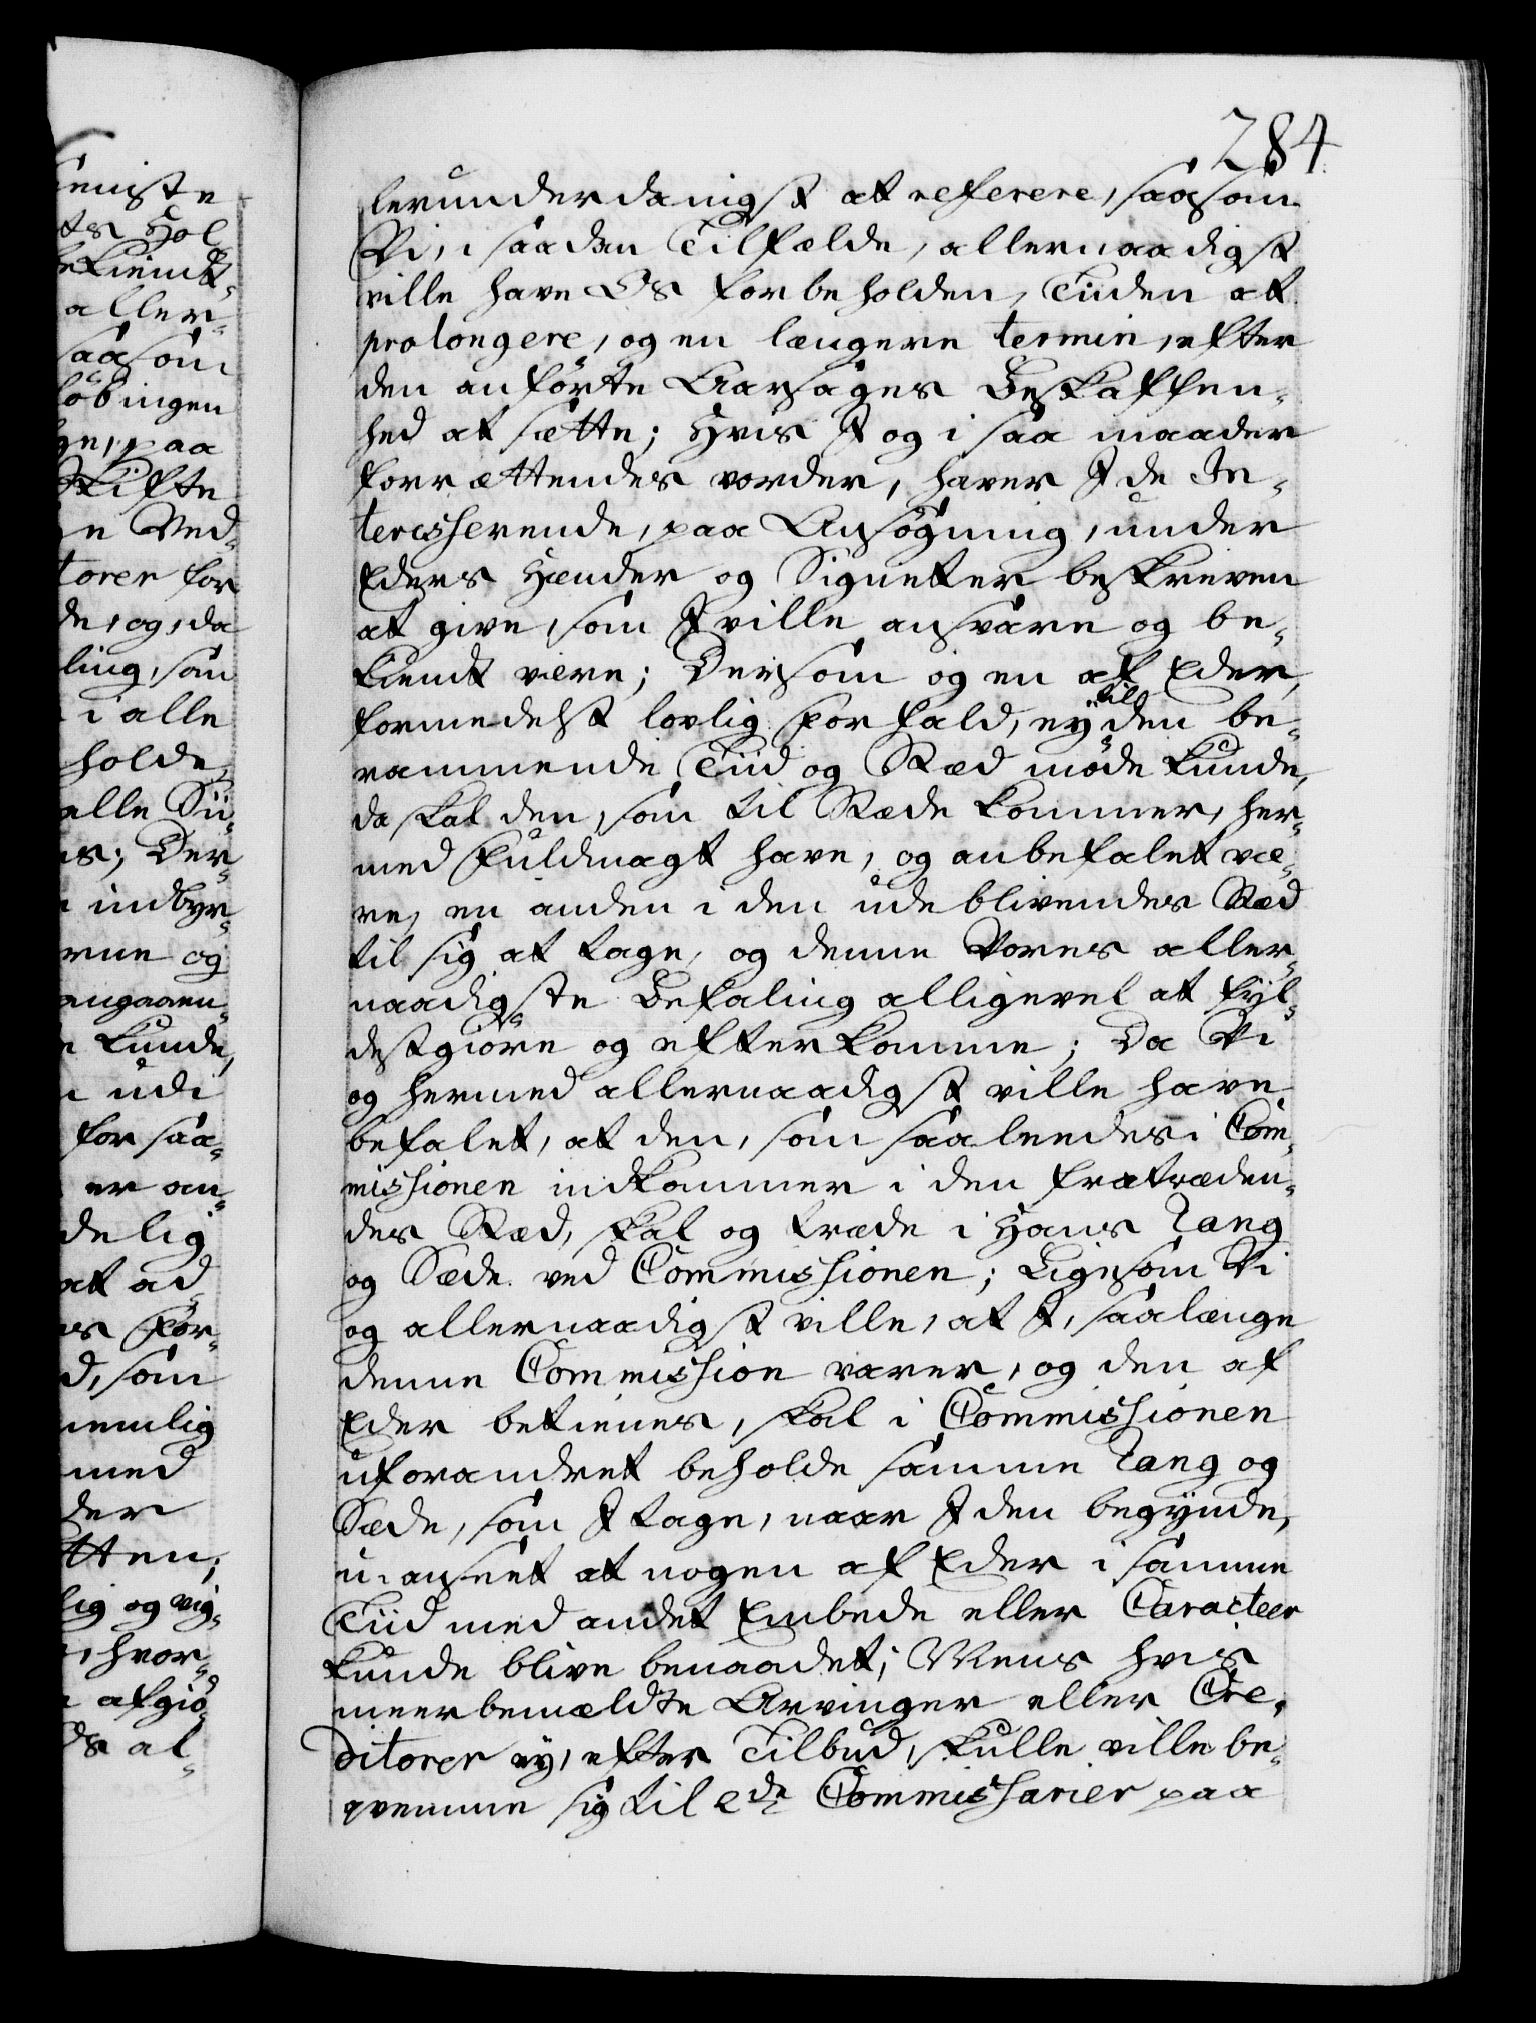 284
lerunderdanigst at referere, saasom
Vi, i saadan Tilfælde, allernaadigst
ville have Os forbeholden, Tiiden at
prolongere, og en længere termin, efter
den anførte Aarsages Beskaffen-
hed at sætte; Hvis I og i saa maader
forrættendes vorder, haver I de In-
teresserende, paa Ansøgning, under
Eders Hænder og Signeter beskreven
at give, som I ville ansvare og be-
kiendt være; Dersom og en af Eder,
formedelst lovlig Forfald, ey til den be-
rammende Tiid og Stæd møde kunde,
da skal den, som til Stæde kommer, her-
med Fuldmagt have, og anbefalet væ-
re, en anden i den udeblivendes Stæd
til sig at tage, og denne Vores aller-
naadigste Befaling alligevel at fyl-
destgiøre og efterkomme; Da Vi
og hermed allernaadigst ville have
befalet, at den, som saaleedes i Com-
missionen indkommer i den fratræden-
des Stæd, skal og træde i Hans Rang
og Sæde ved Commissionen; Ligesom Vi
og allernaadigst ville, at I, saalænge
denne Commission varer, og den af
Eder betienes, skal i Commissionen
uforandret beholde samme Rang og
Sæde, som I tage, naar I den begynde,
u-anseet at nogen af Eder i samme
Tiid med andet Embede eller Caracteer
kunde blive benaadet; Mens hvis
meerbemældte Arvinger eller Cre-
ditorer ey, efter Tilbud, skulle ville be-
qvemme sig til 2de Commissarier paa